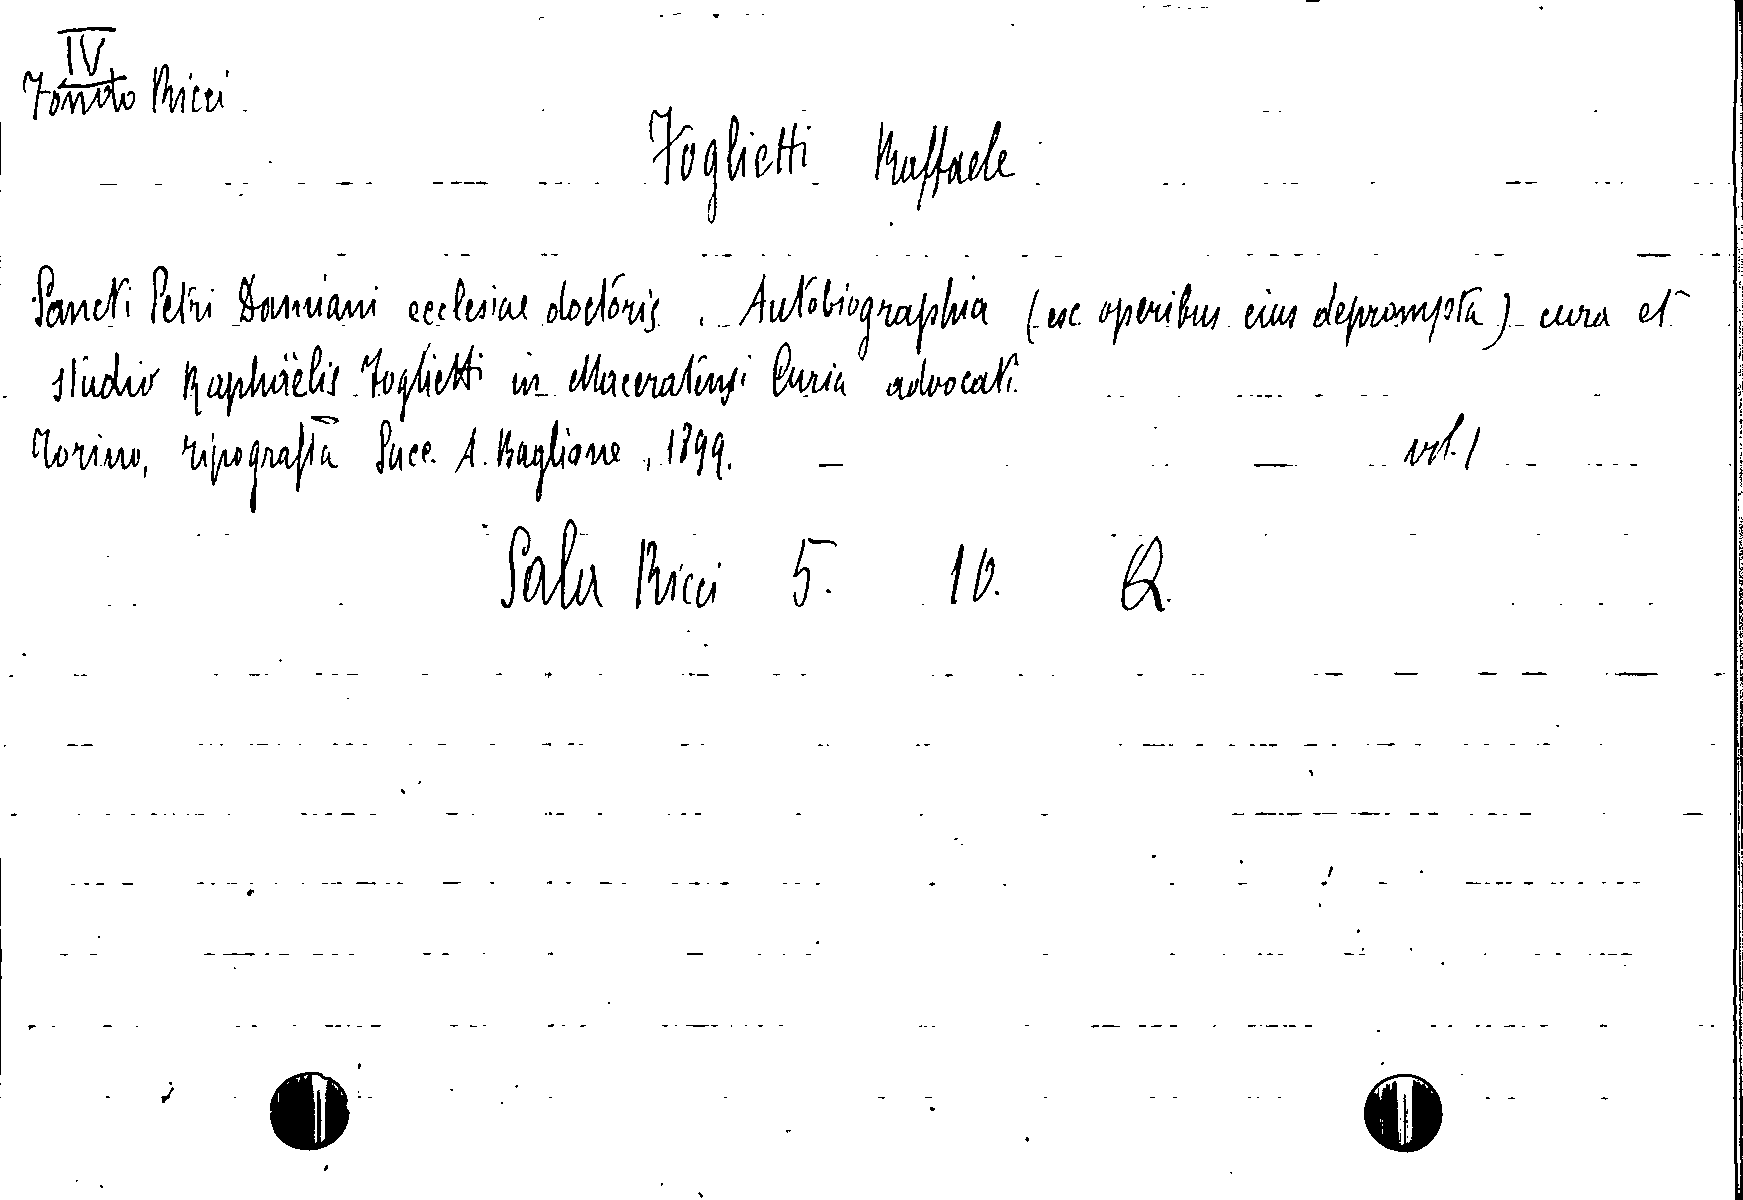 IV
Fondo Ricci
Foglietti Raffaele
Sancti Petri Damiani ecclesiae doctoris. Autobiographia (ex operibus eius deprompta) cura et
studio Raphaëlis Foglietti in Maceratensi Curia advocati.
Torino, tipografia Succ. A. Baglione, 1899. vol. 1
Sala Ricci 5. 10. Q.